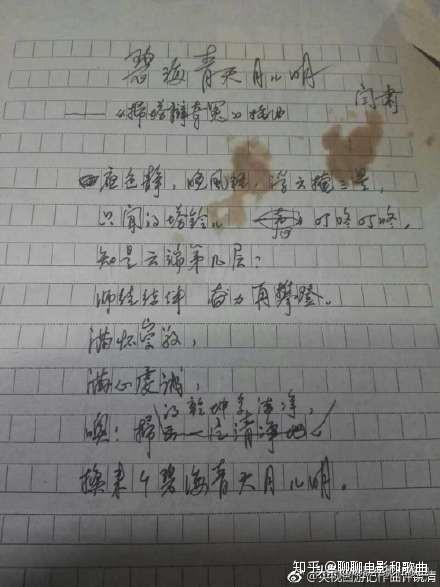 碧海青天月儿明
闫肃
——《掃塔辨奇冤》插曲
夜色静，晚风轻，浮云掩三星，
只闻得塔铃儿 叮咚叮咚。
知是云端第几层？
师徒结伴 奋力再攀登。
满怀崇敬，
满心虔诚，
得乾坤多洁净，
噢！掃
换来个碧海青天月儿明。
知乎 @聊聊电影和歌曲
@央视西游记作曲许镜清